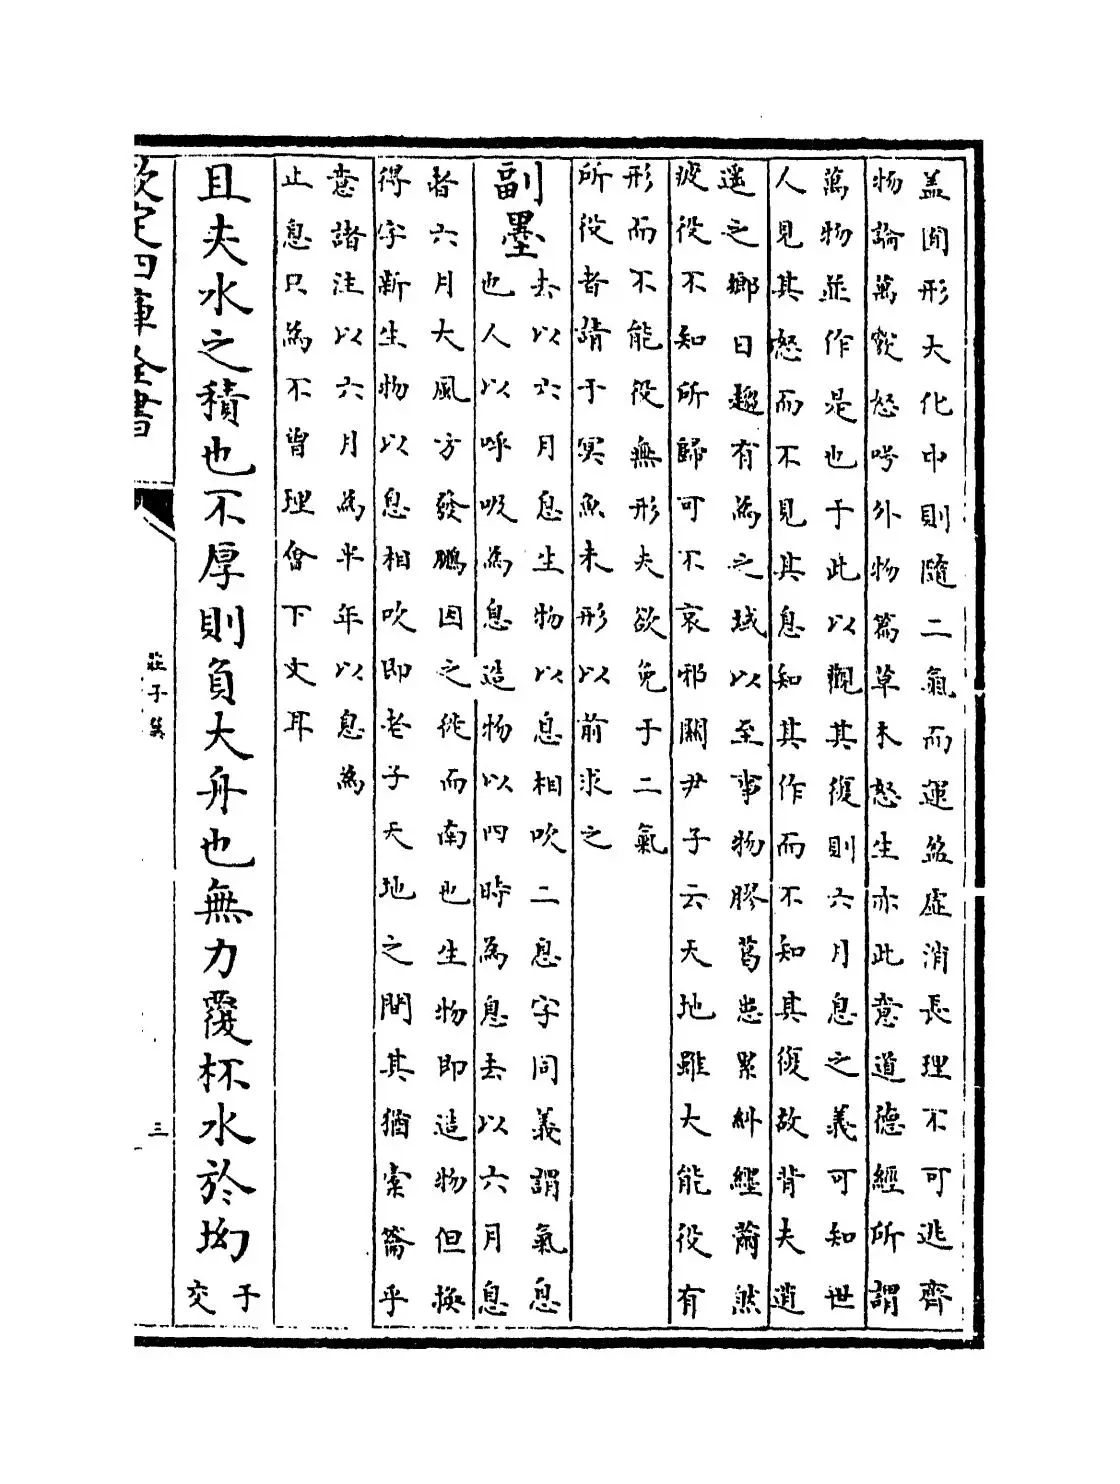 蓋囿形大化中則隨二氣而運盈虛消長理不可逃齊
物論萬竅怒呺外物篇草木怒生亦此意道德經所謂
萬物並作是也于此以觀其復則六月息之義可知世
人見其怒而不見其息知其作而不知其復故背夫逍
遙之鄉日趨有為之域以至事物膠葛患累糾纏薾然
疲役不知所歸可不哀邪關尹子云天地雖大能役有
形而不能役無形夫欲免于二氣
所役者請于冥魚未形以前求之
副墨
去以六月息生物以息相吹二息字同義謂氣息
也人以呼吸為息造物以四時為息去以六月息
者六月大風方發鵬因之徙而南也生物即造物但換
得字新生物以息相吹即老子天地之間其猶橐籥乎
意諸注以六月為半年以息為
止息只為不曾理會下文耳
且夫水之積也不厚則負大舟也無力覆杯水於坳
于
交
欽定四庫全書
莊子翼
三